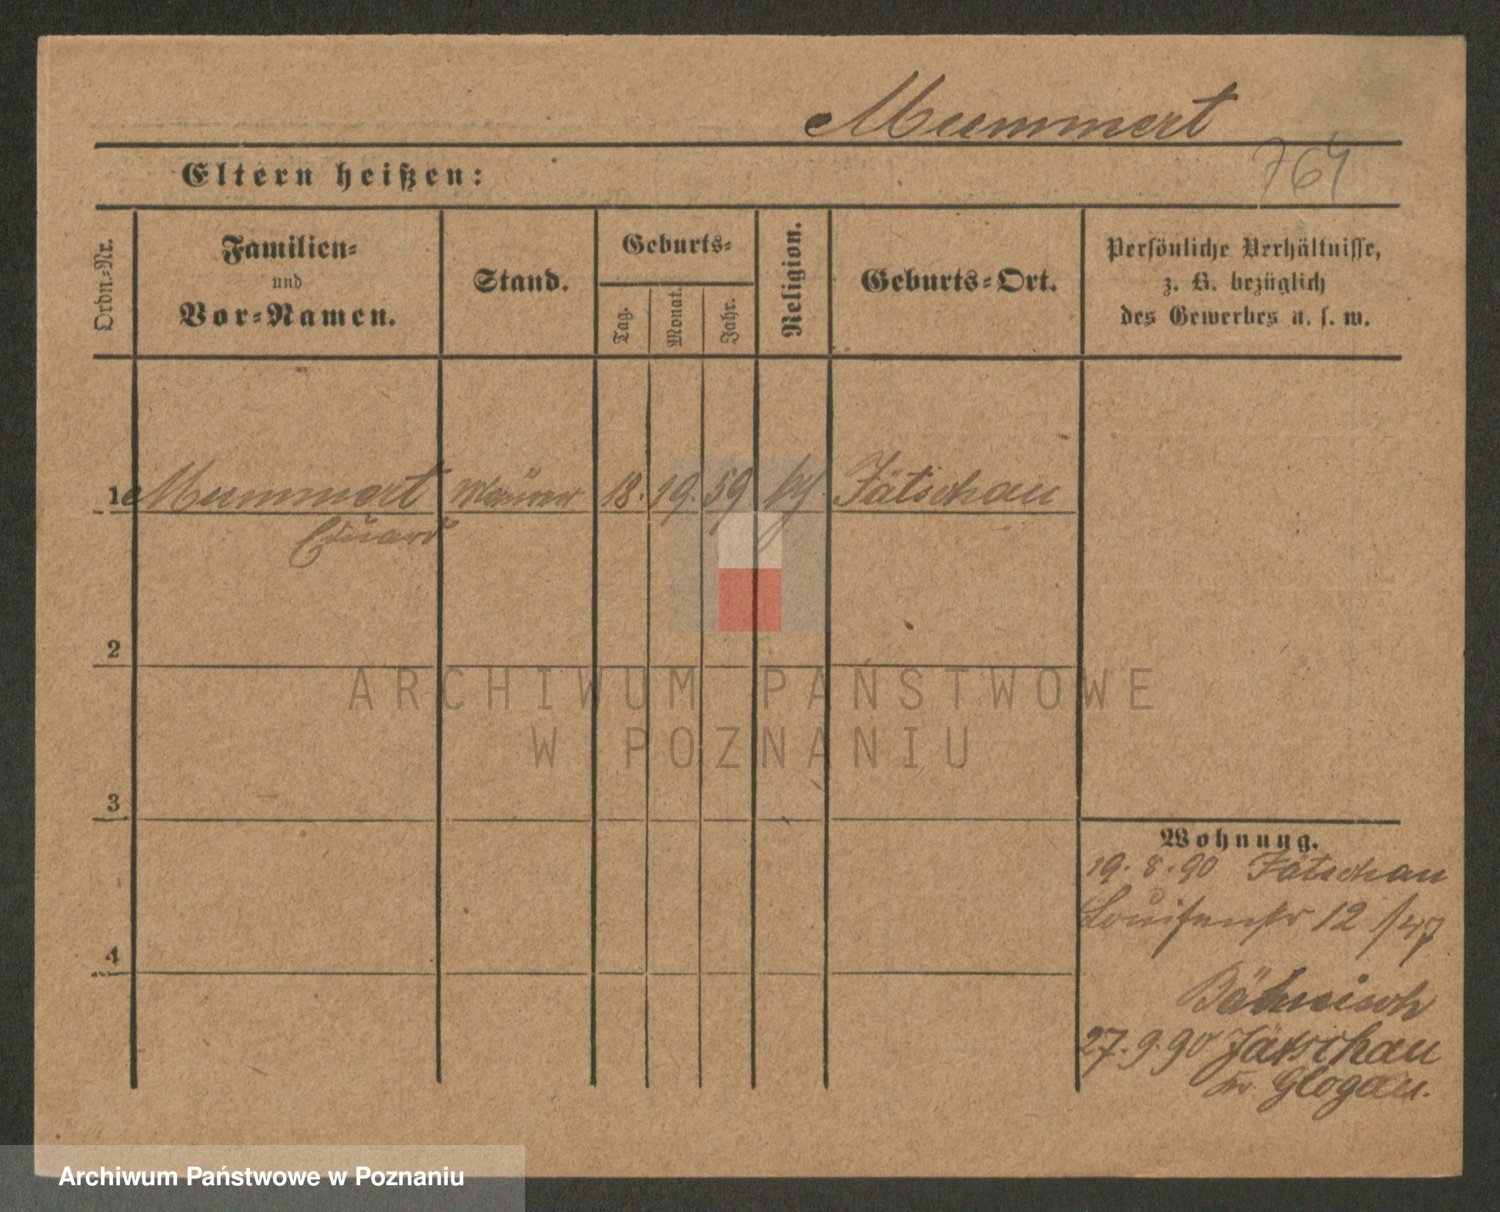 Mummert
764
Eltern heißen:
Ordn.-Nr.
Familien-
und
Vor-Namen.
Stand.
Geburts-
Tag.
Monat.
Jahr.
Religion.
Geburts-Ort.
Persönliche Verhältnisse,
z. B. bezüglich
des Gewerbes u. s. w.
1 Mummert Maurer 18. 19. 59 Jätschau
Eduard
2
ARCHIWUM PAŃSTWOWE
W POZNANIU
3
Wohnung.
19. 8. 90 Jätschau
Louisenstr 12 /47
4
Bähnisch
27. 9. 90 Jätschau
Kr. Glogau.
Archiwum Państwowe w Poznaniu